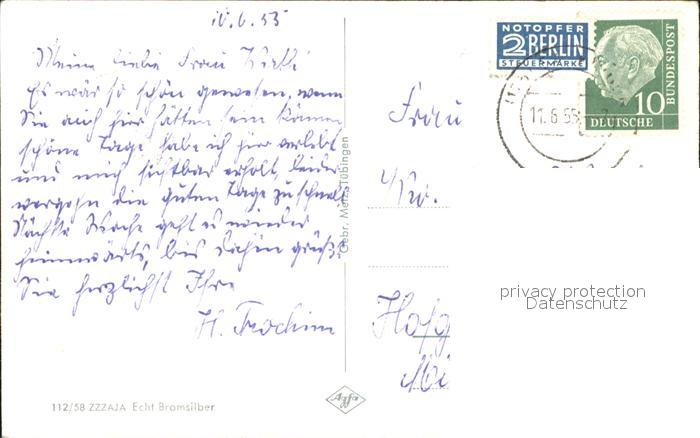 10.6.55
Meine liebe Frau
Es wär so schön gewesen, wenn
Sie auch hier hätten sein können
schöne Tage habe ich hier verlebt
und mich sichtbar erholt, leider
vergehn die guten Tage zu schnell
Nächste Woche geht es wieder
heimwärts, bis dahin grüßt
Sie herzlichst Ihre
H. Trochim
112/58 ZZZAJA Echt Bromsilber
Gebr. Metz, Tübingen
Agfa
NOTOPFER
2 BERLIN
STEUERMARKE
BUNDESPOST
10
DEUTSCHE
11.6.55
Frau
Hofg
privacy protection
Datenschutz